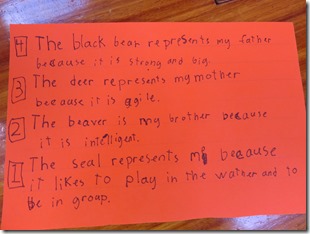 4 The black bear represents my father
because it is strong and big.
3 The deer represents my mother
because it is agile.
2 The beaver is my brother because
it is intelligent.
1 The seal represents me because
it likes to play in the wather and to
be in group.